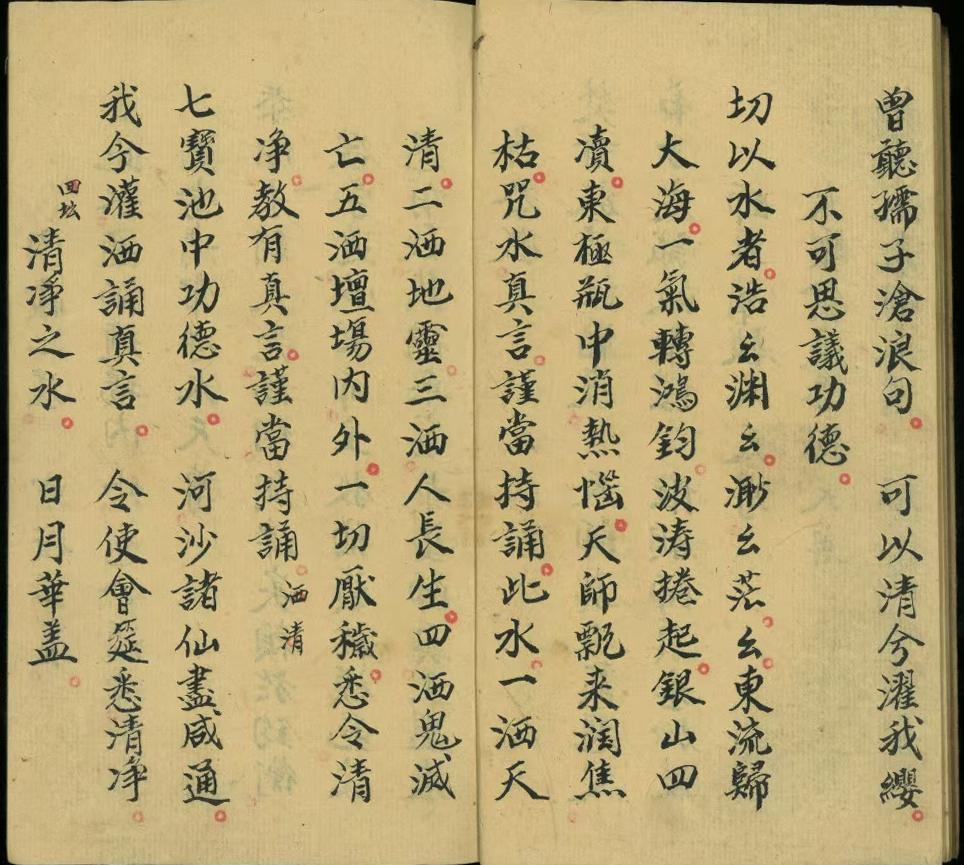 曾聽孺子滄浪句。可以清兮濯我纓。
不可思議功德。
切以水者。浩幺渊幺。渺幺茫。幺。東流歸
大海。一氣轉鴻鈞。波涛捲起。銀山四
瀆。東極瓶中消熱惱。天師瓢来润焦
枯。咒水真言。謹當持誦。此水。一洒天
清。二洒地靈。三洒人長生。四洒鬼滅
亡。五洒壇場内外。一切厭穢。悉令清
净。教有真言。謹當持誦。洒清
七寶池中功德水。河沙諸仙盡咸通。
我今灌洒誦真言。令使會筵悉清净。
回坛 清净之水。日月華盖。